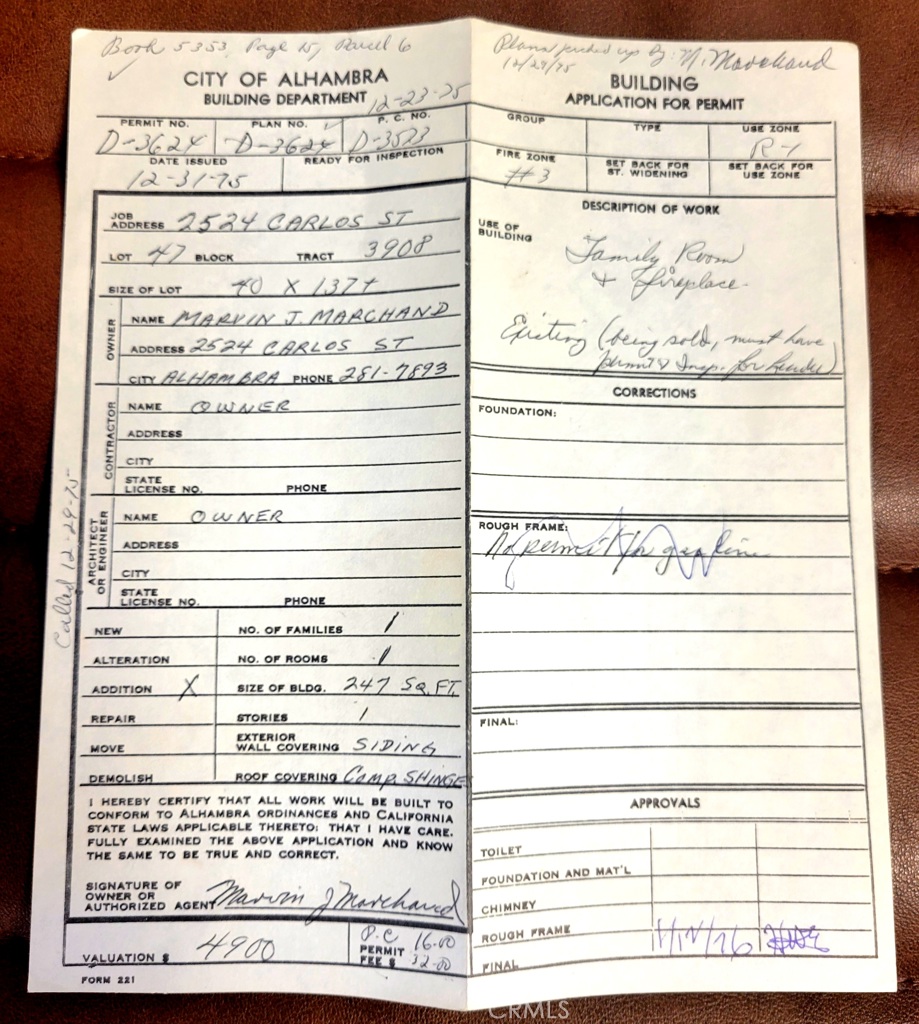 Book 5353, Page 15, Parcel 6
✓
CITY OF ALHAMBRA
BUILDING DEPARTMENT 12-23-75
PERMIT NO. PLAN NO. P. C. NO.
D-3624 D-3624 D-3523
DATE ISSUED READY FOR INSPECTION
12-31-75
JOB
ADDRESS 2524 CARLOS ST
LOT 47 BLOCK TRACT 3908
SIZE OF LOT 40 X 137+
OWNER
NAME MARVIN J. MARCHAND
ADDRESS 2524 CARLOS ST
CITY ALHAMBRA PHONE 281-7893
CONTRACTOR
NAME OWNER
ADDRESS
CITY
STATE
LICENSE NO. PHONE
Called 12-29-75
ARCHITECT
OR ENGINEER
NAME OWNER
ADDRESS
CITY
STATE
LICENSE NO. PHONE
NEW NO. OF FAMILIES 1
ALTERATION NO. OF ROOMS 1
ADDITION X SIZE OF BLDG. 247 SQ. FT.
REPAIR STORIES 1
MOVE EXTERIOR
WALL COVERING SIDING
DEMOLISH ROOF COVERING Comp. SHINGE
I HEREBY CERTIFY THAT ALL WORK WILL BE BUILT TO
CONFORM TO ALHAMBRA ORDINANCES AND CALIFORNIA
STATE LAWS APPLICABLE THERETO: THAT I HAVE CARE.
FULLY EXAMINED THE ABOVE APPLICATION AND KNOW
THE SAME TO BE TRUE AND CORRECT.
SIGNATURE OF
OWNER OR
AUTHORIZED AGENT Marvin J Marchand
VALUATION $ 4900
P.C 16.00
PERMIT
FEE $ 32.00
FORM 221
Plans picked up by: M. Marchand
12/29/75
BUILDING
APPLICATION FOR PERMIT
GROUP TYPE USE ZONE
R-1
FIRE ZONE SET BACK FOR
ST. WIDENING SET BACK FOR
USE ZONE
#3
DESCRIPTION OF WORK
USE OF
BUILDING
Family Room
+ Fireplace.
Existing (being sold, must have
permit & Insp. for
CORRECTIONS
FOUNDATION:
ROUGH FRAME:
No permit for gas line
FINAL:
APPROVALS
TOILET
FOUNDATION AND MAT'L
CHIMNEY
ROUGH FRAME
FINAL
CRMLS